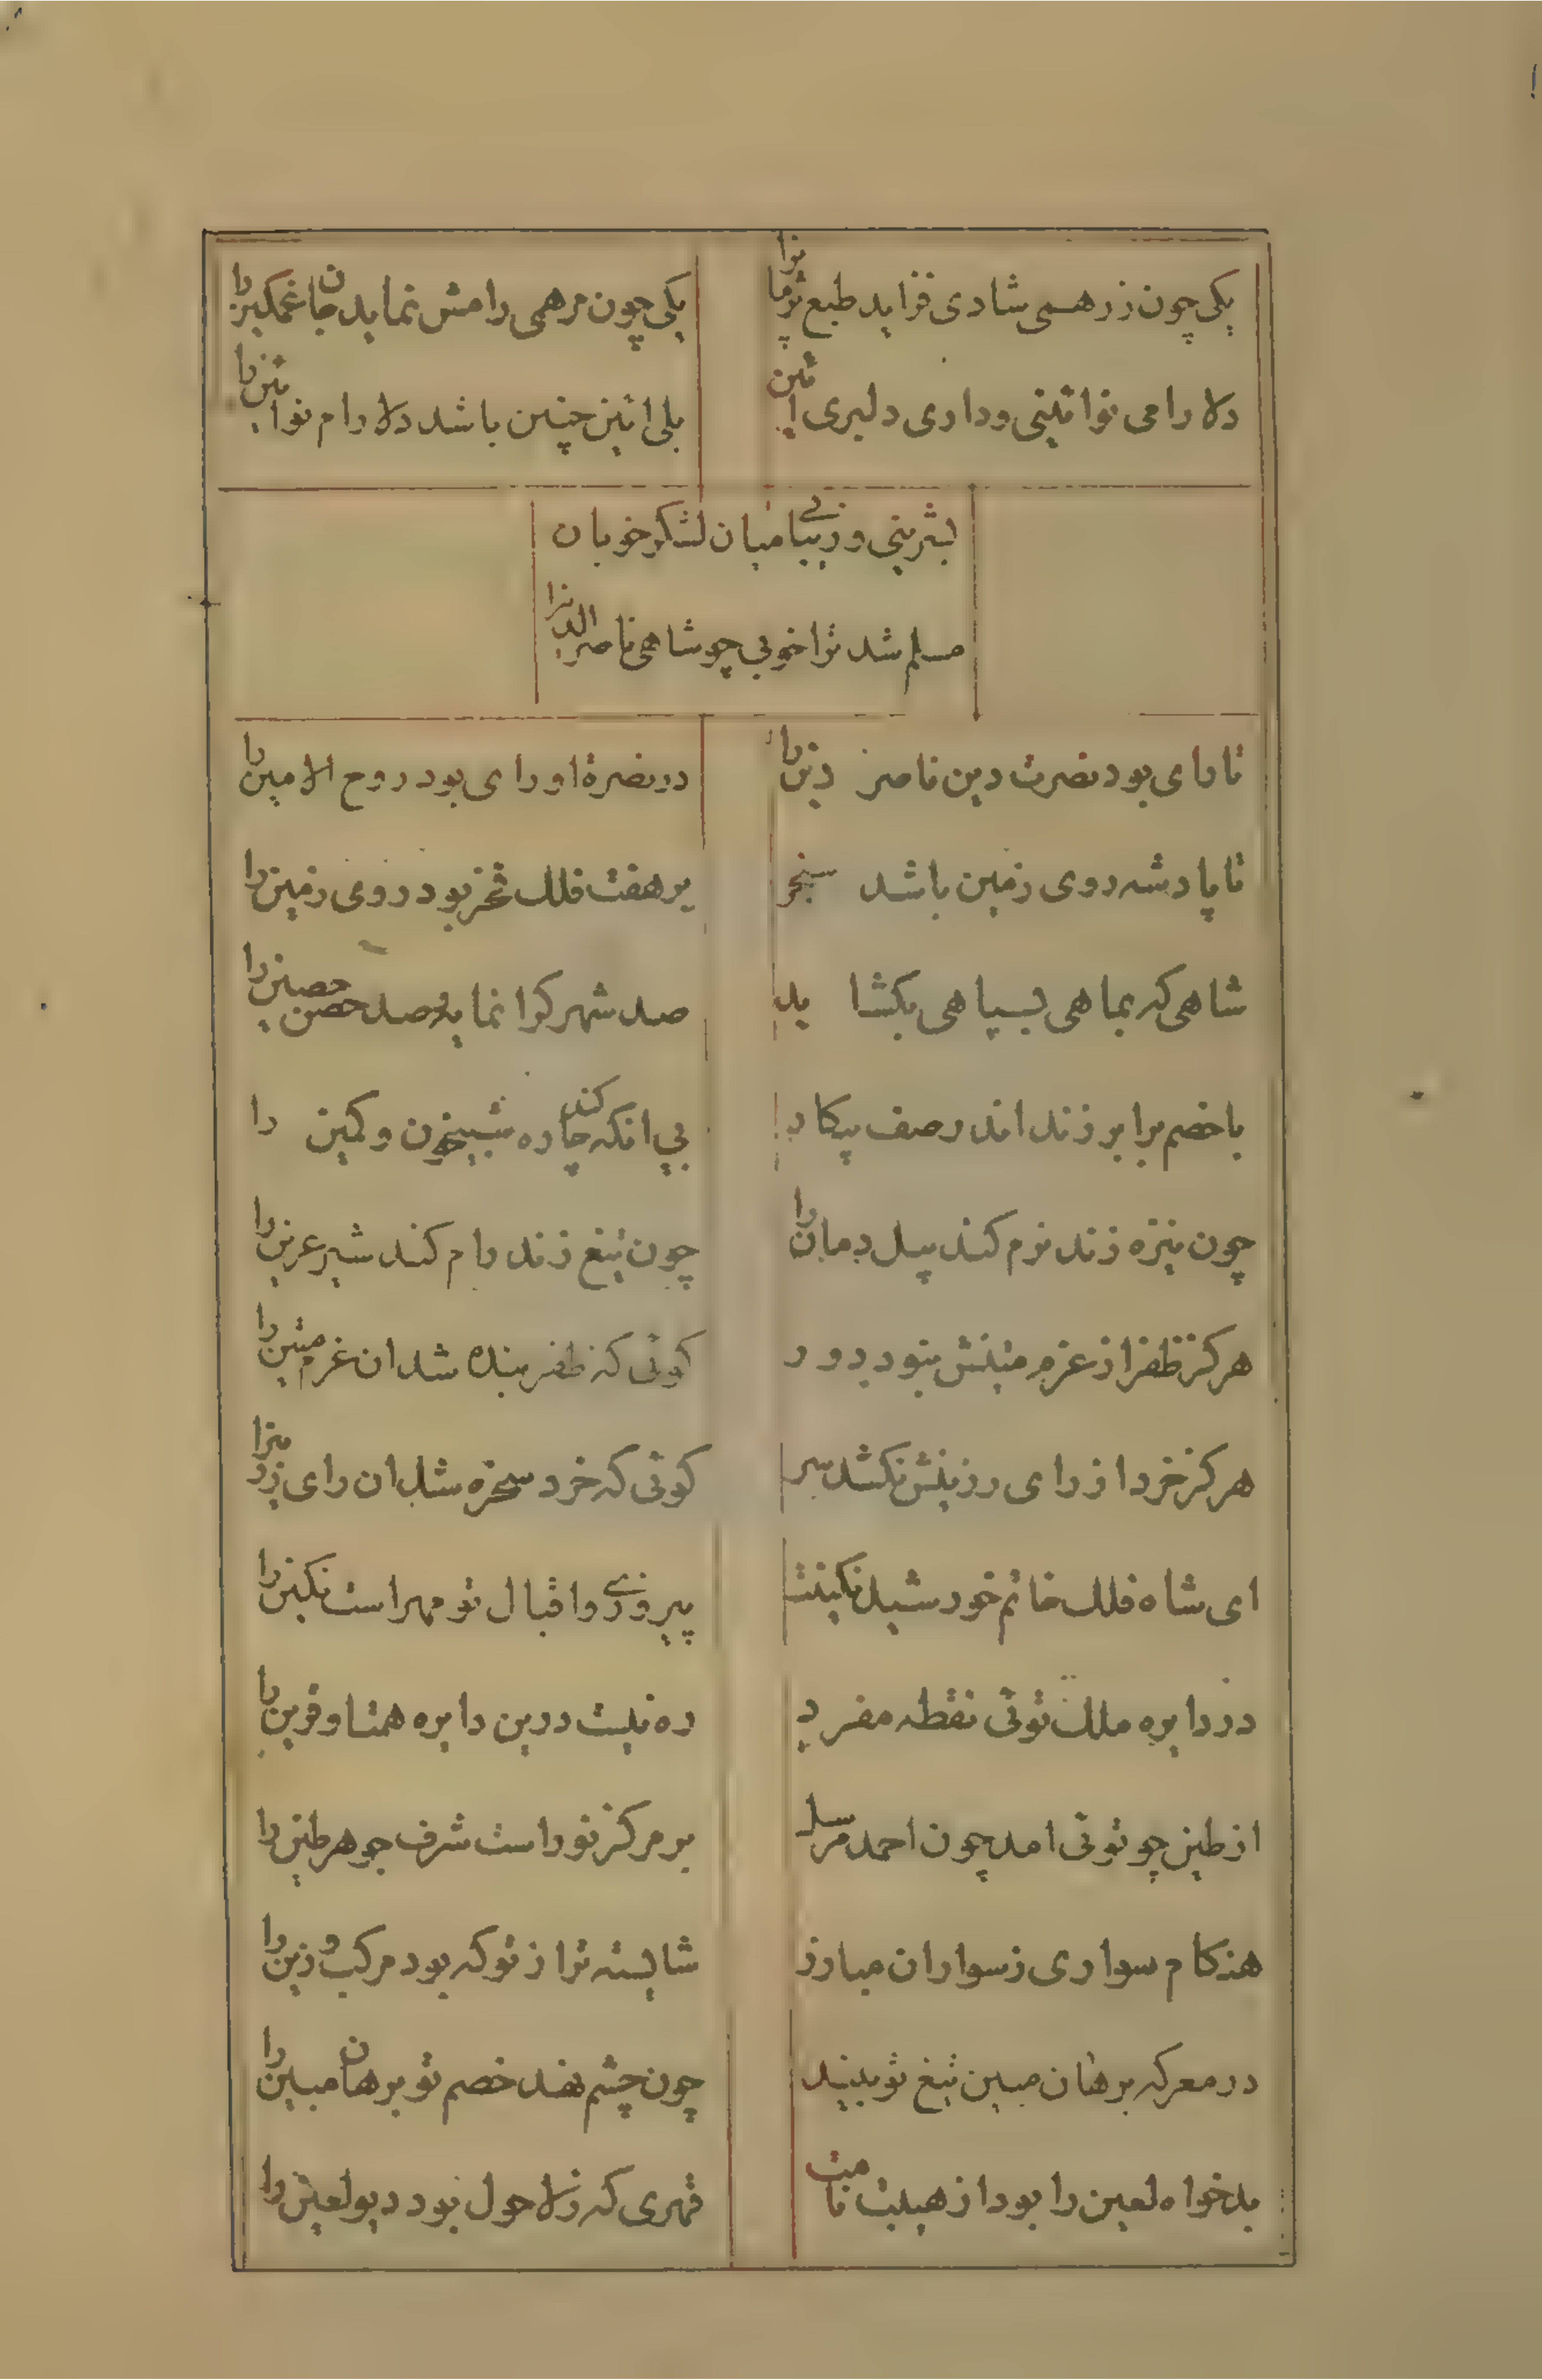 یکی چون زر همی شادی فزاید طبع برنا را
یکی چون مر همی رامش نماید جان غمکین را
دلارامی نوائینی و داری دلبری ائین
بلی ائین چنین باشد دلارام نوائین را
بشیرینی و زیبایی میان لشکر خوبان
مسلم شد ترا خوبی چو شاهی ناصرالدین را
تا رای بود نصرت دین ناصر دین را
در نصرة او رای بود روح الامین را
تا پادشه روی زمین باشد سنجر
بر هفت فلک فخر بود روی زمین را
شاهی که بماهی بسپاهی بکشاید
صد شهر کرانمایه و صد حصن حصین را
با خصم برابر زند اندر صف پیکار
بی انکه کند چاره شبیخون و کمین را
چون نیزه زند نرم کند پیل دمان را
چون تیغ زند رام کند شیر عرین را
هرکز ظفر از عزم متینش نبود دور
کوئی که ظفر بنده شد ان عزم متین را
هرکز خرد از رای رزینش نکشد سر
کوئی که خرد سخره شد ان رای رزین را
ای شاه فلک خاتم خورشید نکینت
پیروزی و اقبال تو مهر است نکین را
در دایره ملک توئی نقطه مفرد
ره نیست درین دایره همتا و قرین را
از طین چو توئی امد چون احمد مرسل
بر مرکز نور است شرف جوهر طین را
هنکام سواری ز سواران مبارز
شایسته تر از تو که بود مرکب و زین را
در معرکه برهان مبین تیغ تو بیند
چون چشم نهد خصم تو برهان مبین را
بدخواه لعین را بود از هیبت نامت
قهری که ز لاحول بود دیو لعین را